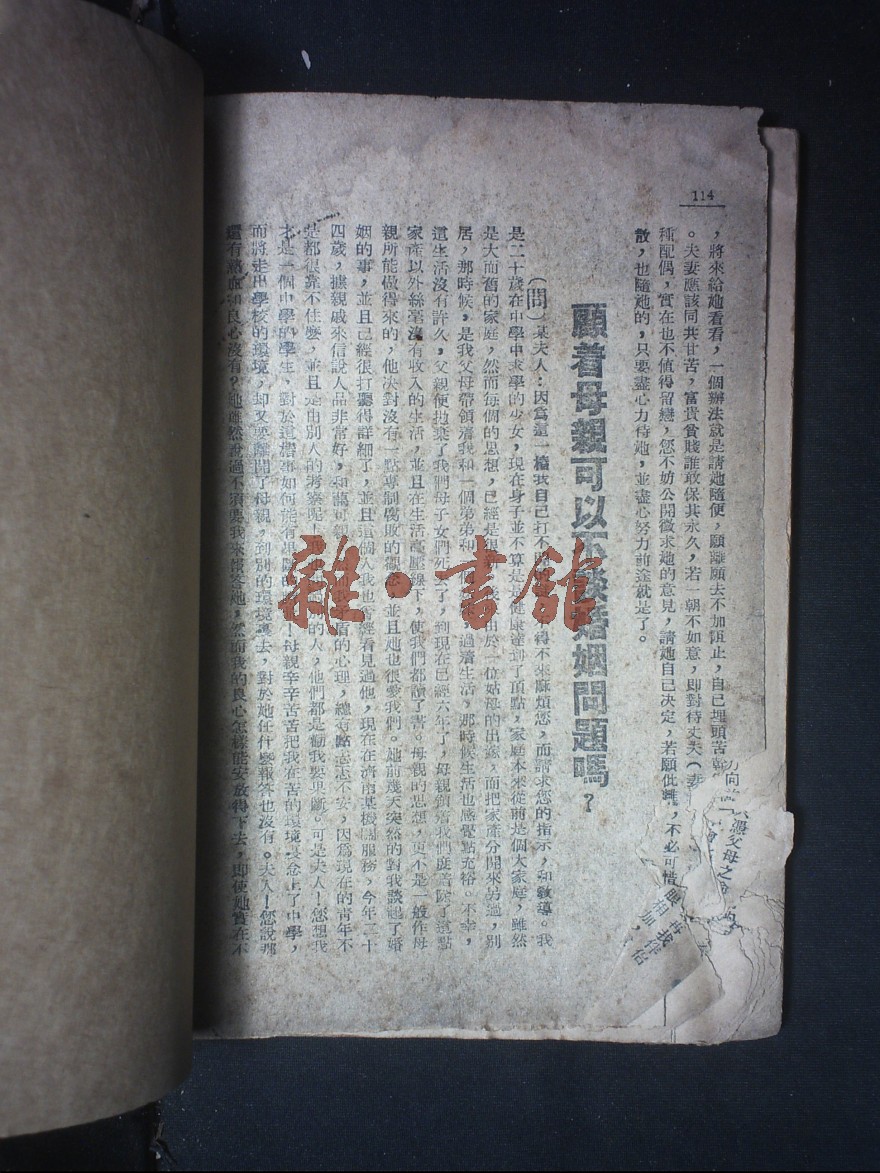 114
，將來給她看看，一個辦法就是請她隨便，願離願去不加阻止，自己埋頭苦幹
。夫妻應該同共甘苦，富貴貧賤誰敢保其永久，若一朝不如意，即對待丈夫（妻
種配偶，實在也不値得留戀，您不妨公開徵求她的意見，請她自己決定，若願仳離，不必可惜
散，也隨她的，只要盡心力待她，並盡心努力前途就是了。
顧着母親可以不談婚姻問題嗎？
（問）某夫人：因爲這一樁我自己打不開得不來麻煩您，而請求您的指示，和敎導。我
是二十歲在中學中求學的少女，現在身子並不算是是健康達到了頂點，家庭本來從前是個大家庭，雖然
是大而舊的家庭，然而每個的思想，已經是很出於一位姑母的出嫁，而把家產分開來另過，別
居，那時候，是我父母帶領着我和一個弟弟和過着生活，那時候生活也感覺點充裕。不幸，
這生活沒有許久，父親便拋棄了我們母子女們死去了，到現在已經六年了，母親領着我們度着除了這點
家產以外絲毫沒有收入的生活，並且在生活高壓線下，使我們都讀了書。母親的思想，更不是一般作母
親所能做得來的，他決對沒有一點專制腐敗的觀念，並且她也很愛我們。她前幾天突然的對我談起了婚
姻的事，並且已經很打聽得詳細了，並且這個人我也曾經看見過他，現在在濟南某機關服務，今年二十
四歲，據親戚來信說人品非常好，和藹可親盾的心理，總有點忐忑不安，因爲現在的靑年不
是都很靠不住麽，並且是由別人的考察呢上別的人，他們都是勸我要果斷。可是夫人！您想我
才是一個中學的學生，對於這婚事如何能有果斷！母親辛辛苦苦把我在苦的環境長念上了中學，
而將走出學校的環境，却又要離開了母親，到別的環境裏去，對於她任什麽報答也沒有。夫人！您說那
還有熱血和良心沒有？她雖然說過不須要我來報答她，然而我的良心怎樣能安放得下去，卽使她實在不
憑父母之命
方向
雜·書館